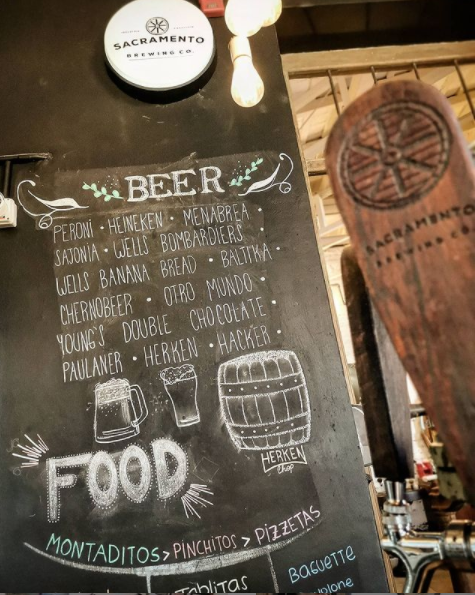 SACRAMENTO
BREWING CO.
BEER
PERONI · HEINEKEN · MENABREA ·
SAJONIA · WELLS BOMBARDIERS ·
WELLS BANANA BREAD · BALTIKA ·
CHERNOBEER · OTRO MUNDO ·
YOUNG'S DOUBLE CHOCOLATE ·
PAULANER · HERKEN · HACKER ·
HERKEN
Chop
FOOD
MONTADITOS > PINCHITOS > PIZZETAS
Tablitas
BAGUETTE
SACRAMENTO
BREWING CO.